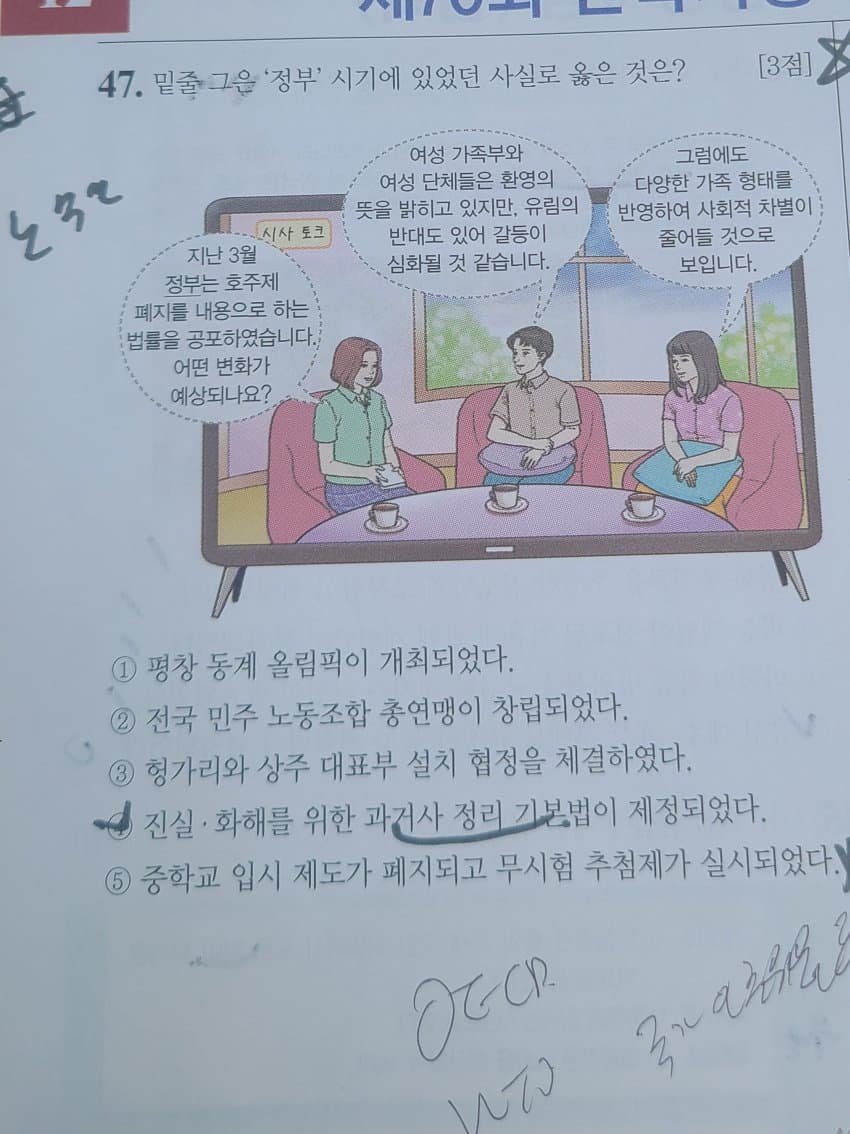 47. 밑줄 그은 '정부' 시기에 있었던 사실로 옳은 것은? [3점]
시사 토크
지난 3월
정부는 호주제
폐지를 내용으로 하는
법률을 공포하였습니다.
어떤 변화가
예상되나요?
여성 가족부와
여성 단체들은 환영의
뜻을 밝히고 있지만, 유림의
반대도 있어 갈등이
심화될 것 같습니다.
그럼에도
다양한 가족 형태를
반영하여 사회적 차별이
줄어들 것으로
보입니다.
① 평창 동계 올림픽이 개최되었다.
② 전국 민주 노동조합 총연맹이 창립되었다.
③ 헝가리와 상주 대표부 설치 협정을 체결하였다.
④ 진실·화해를 위한 과거사 정리 기본법이 제정되었다.
⑤ 중학교 입시 제도가 폐지되고 무시험 추첨제가 실시되었다.
OECD
WTO